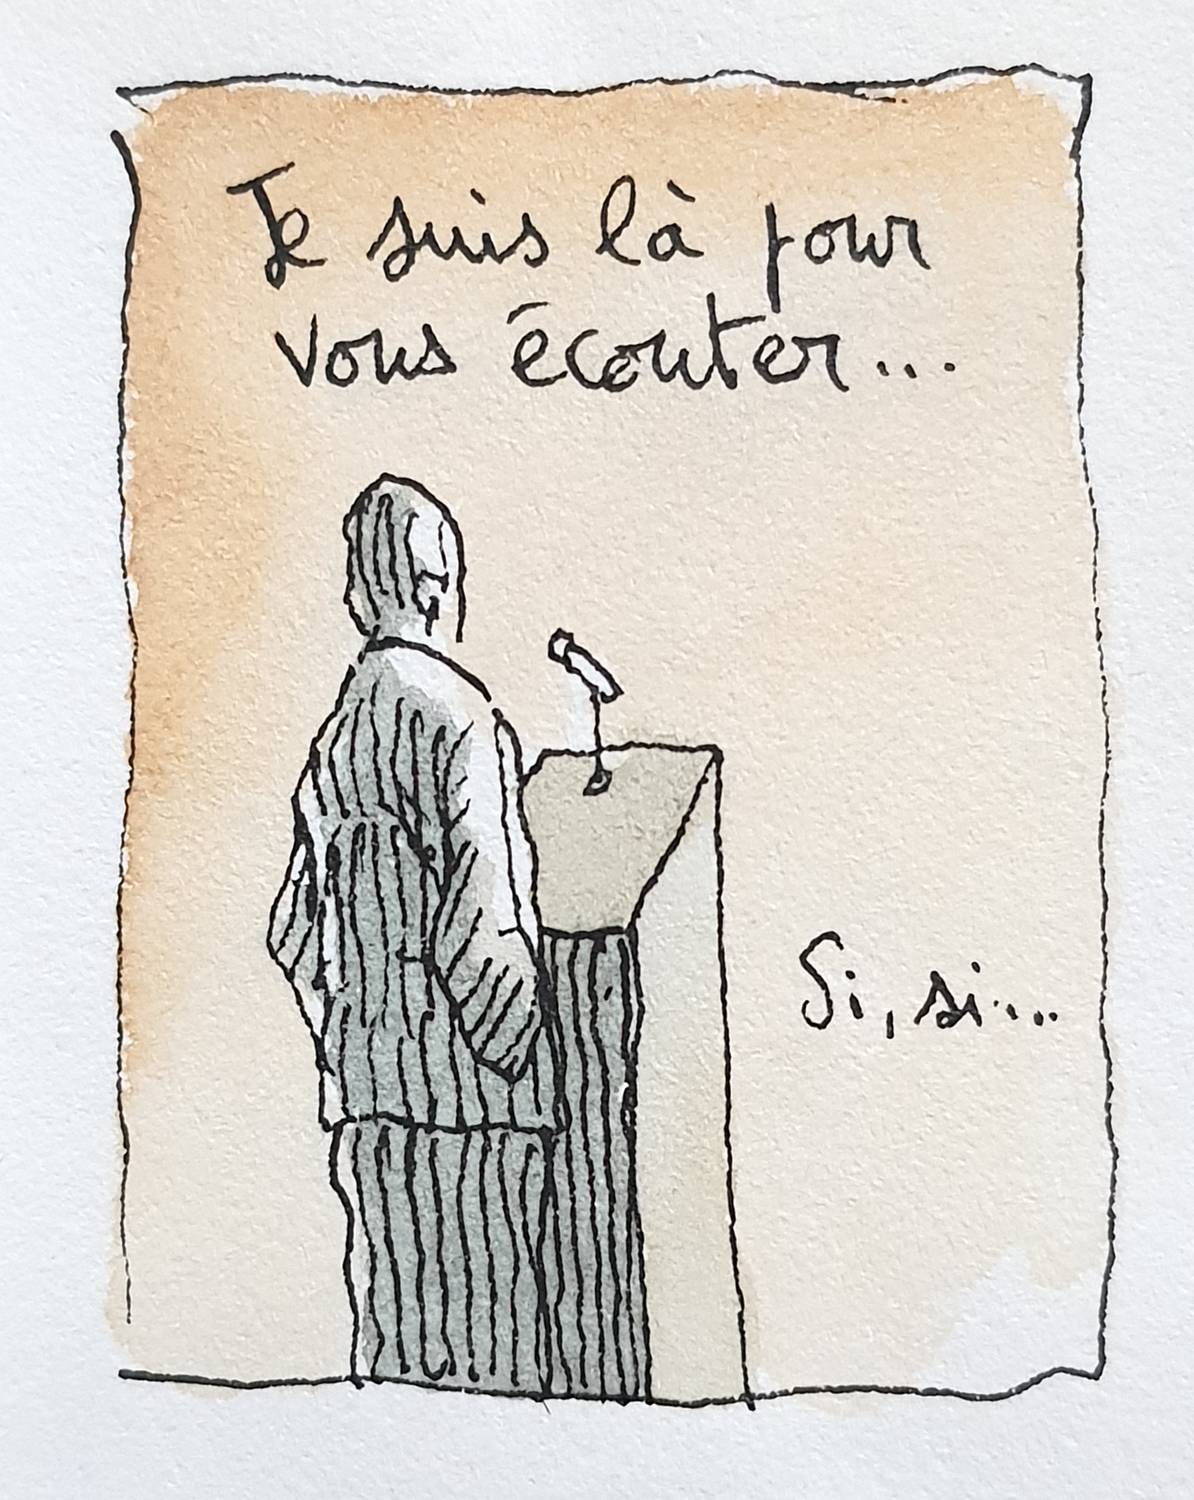 Je suis là pour
vous écouter...
Si, si...